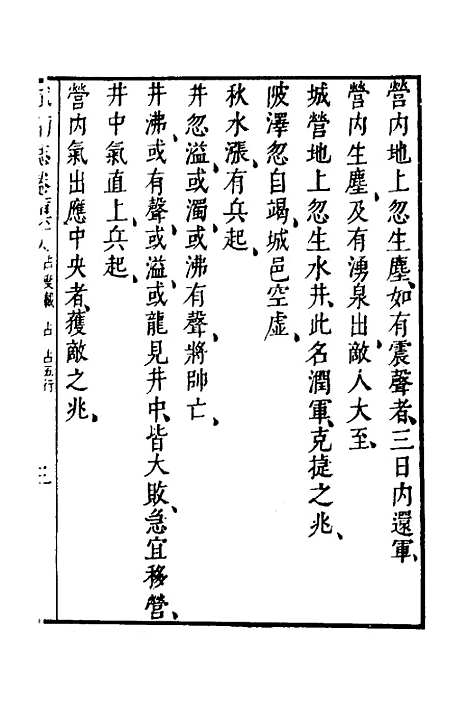 營内地上忽生塵、如有震聲者、三日内還軍、
營内生塵、及有湧泉出敵人大至、
城營地上忽生水井、此名潤軍、克捷之兆、
陂澤忽自竭、城邑空虚、
秋水漲、有兵起、
井忽溢、或濁、或沸有聲、將帥亡、
井沸、或有聲、或溢、或龍見井中、皆大敗、急宜移營、
井中氣直上、兵起、
營内氣出應中央者、獲敵之兆、
占 占五行